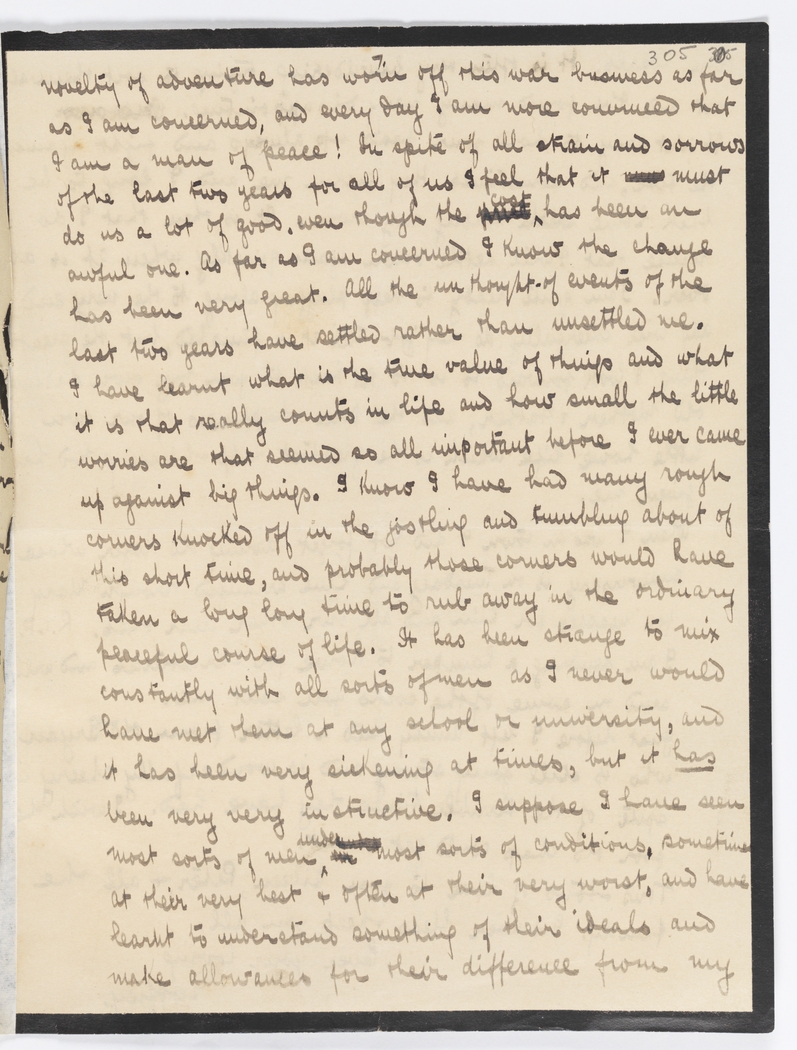 305 305
novelty of adventure has worn off this war business as far
as I am concerned, and every day I am more convinced that
I am a man of peace! In spite of all strain and sorrows
of the last two years for all of us I feel that it must
do us a lot of good, even though the cost has been an
awful one. As far as I am concerned I know the change
has been very great. All the unthought-of events of the
last two years have settled rather than unsettled me.
I have learnt what is the true value of things and what
it is that really counts in life and how small the little
worries are that seemed so all important before I ever came
up against big things. I know I have had many rough
corners knocked off in the jostling and tumbling about of
this short time, and probably those corners would have
taken a long long time to rub away in the ordinary
peaceful course of life. It has been strange to mix
constantly with all sorts of men as I never would
have met them at any school or university, and
it has been very sickening at times, but it has
been very very instructive. I suppose I have seen
most sorts of men under most sorts of conditions, sometimes
at their very best & often at their very worst, and have
learnt to understand something of their ideals and
make allowances for their difference from my